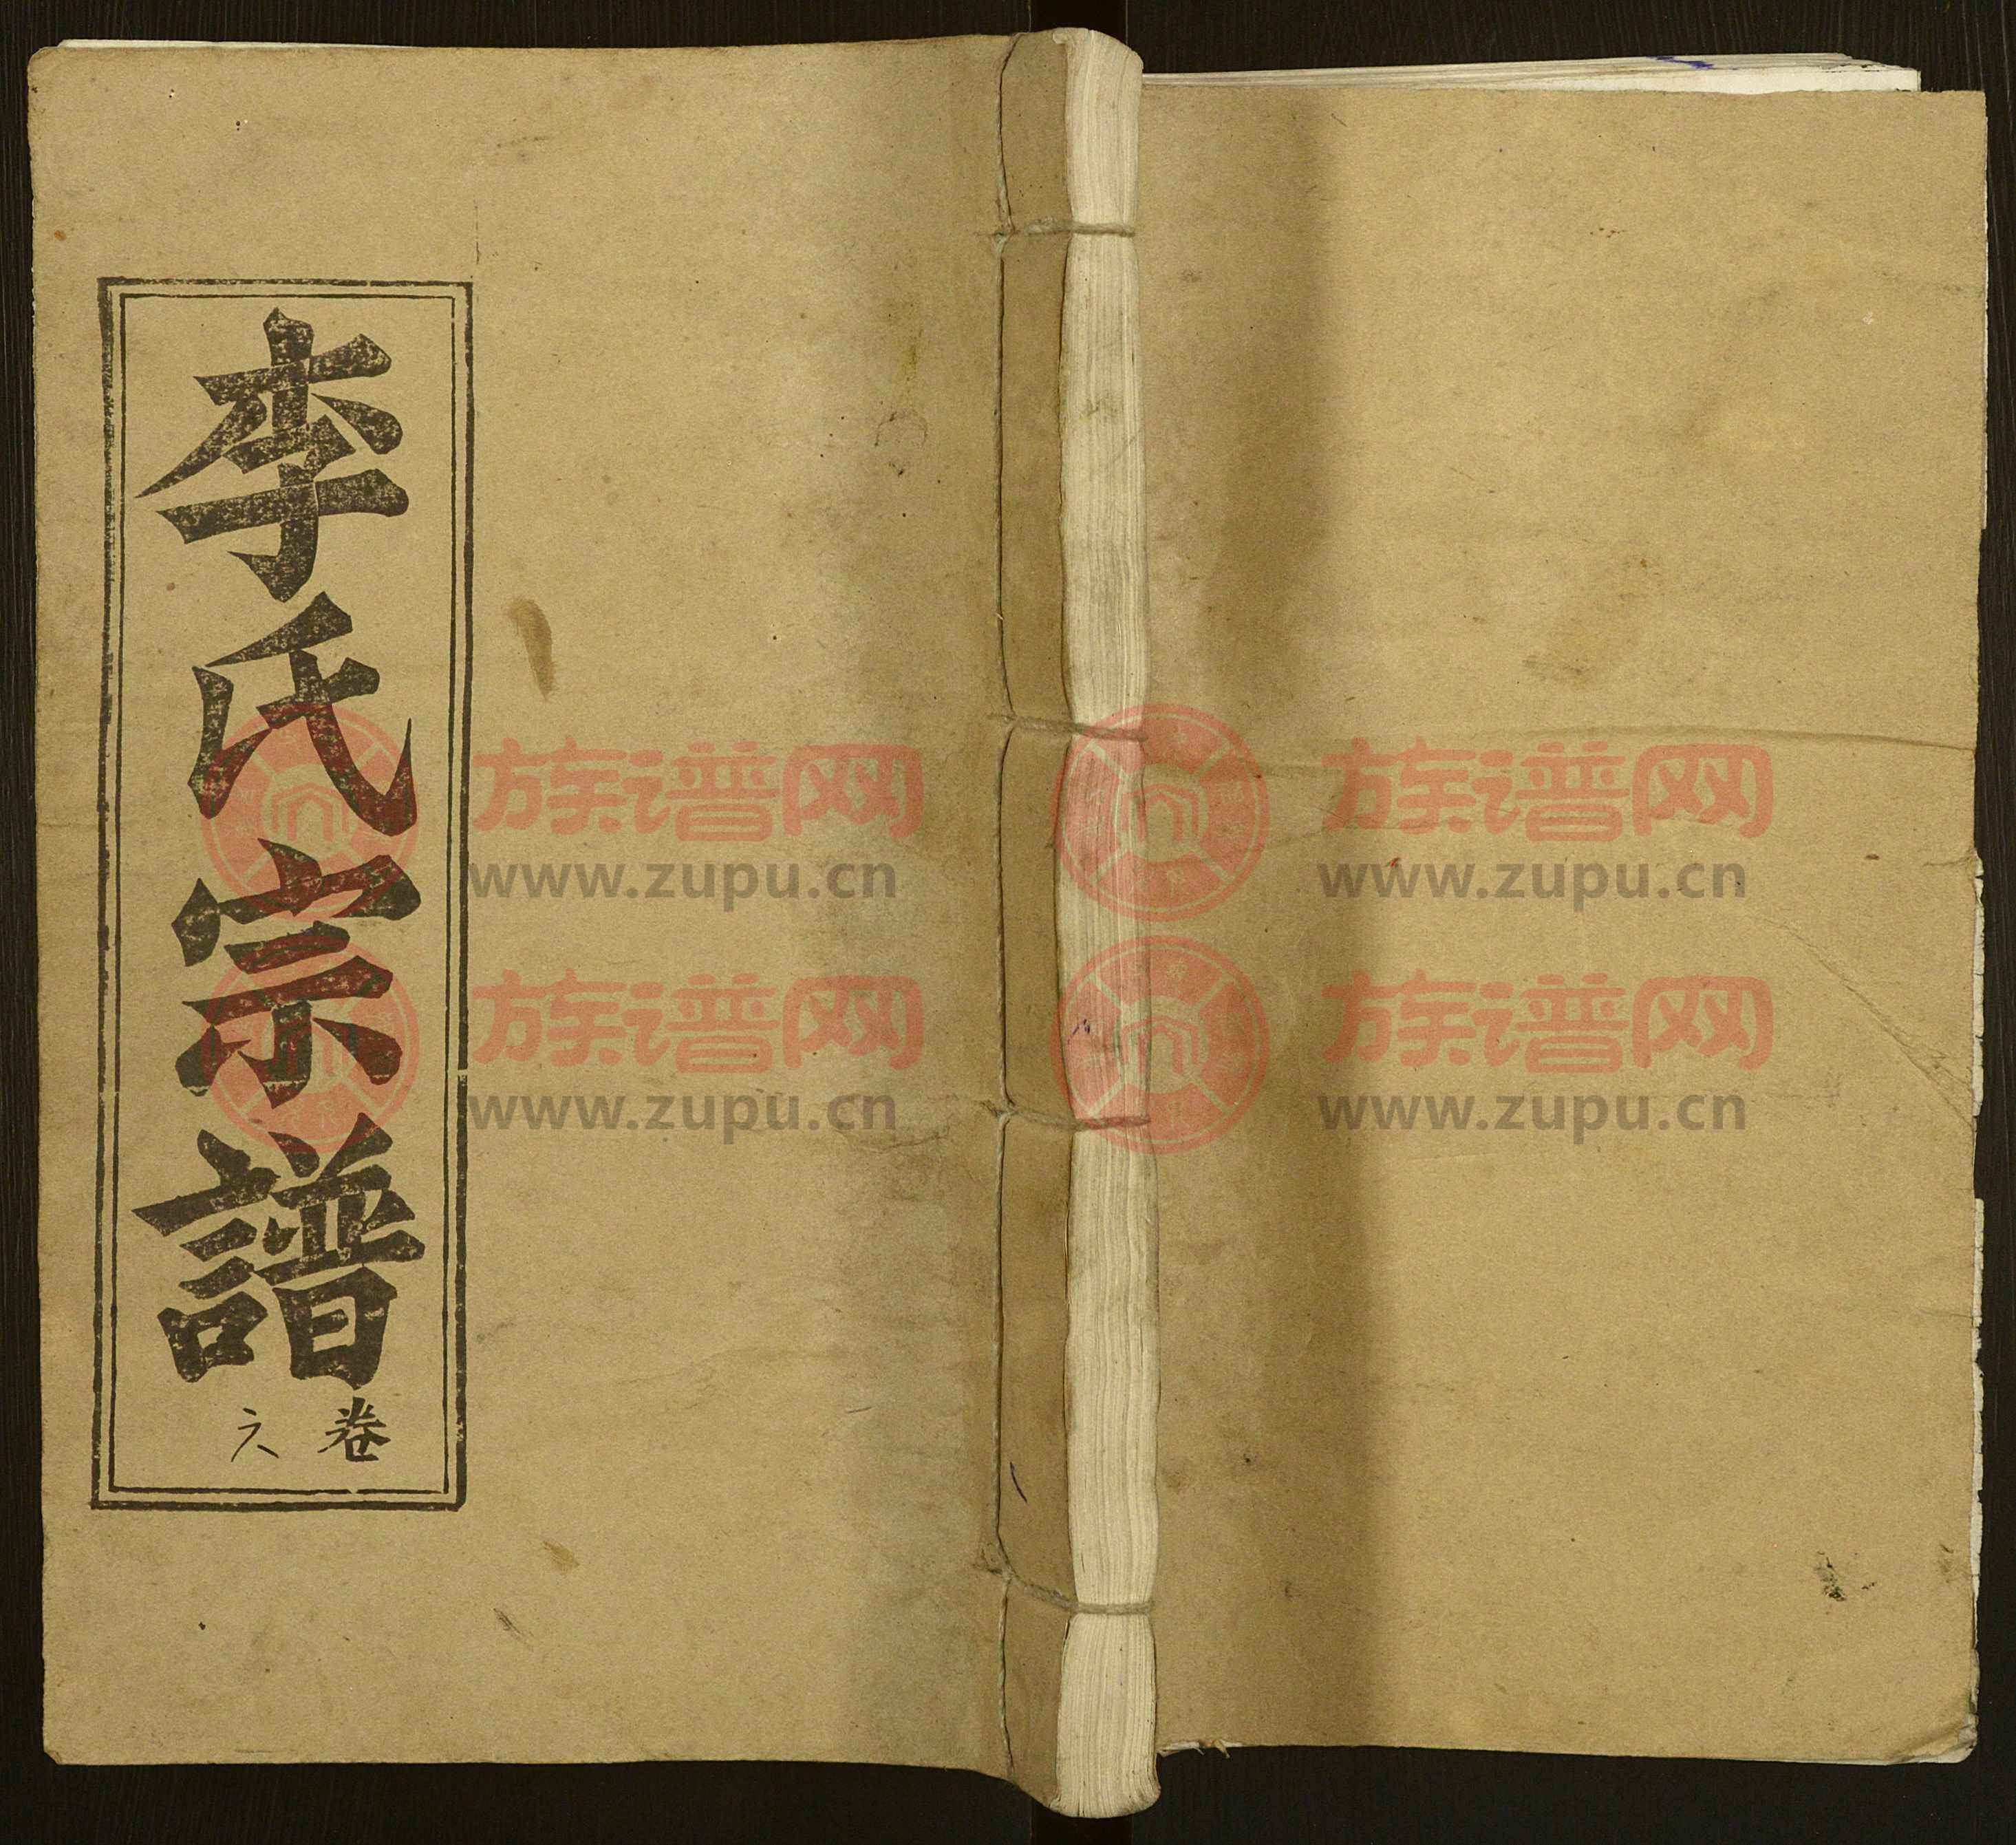 李氏宗譜
卷六
族谱网
www.zupu.cn
族谱网
www.zupu.cn
族谱网
www.zupu.cn
族谱网
www.zupu.cn